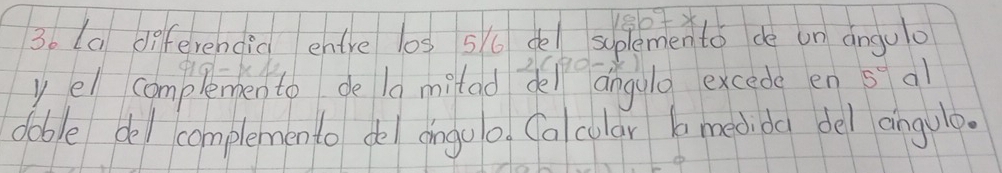 180 - x
3. La diferencia entre los 5/6 del suplemento de un ángulo
90 - x/2 2(90-x)
y el complemento de la mitad del ángulo excede en 5° al
doble del complemento del ángulo. Calcular la medida del ángulo.